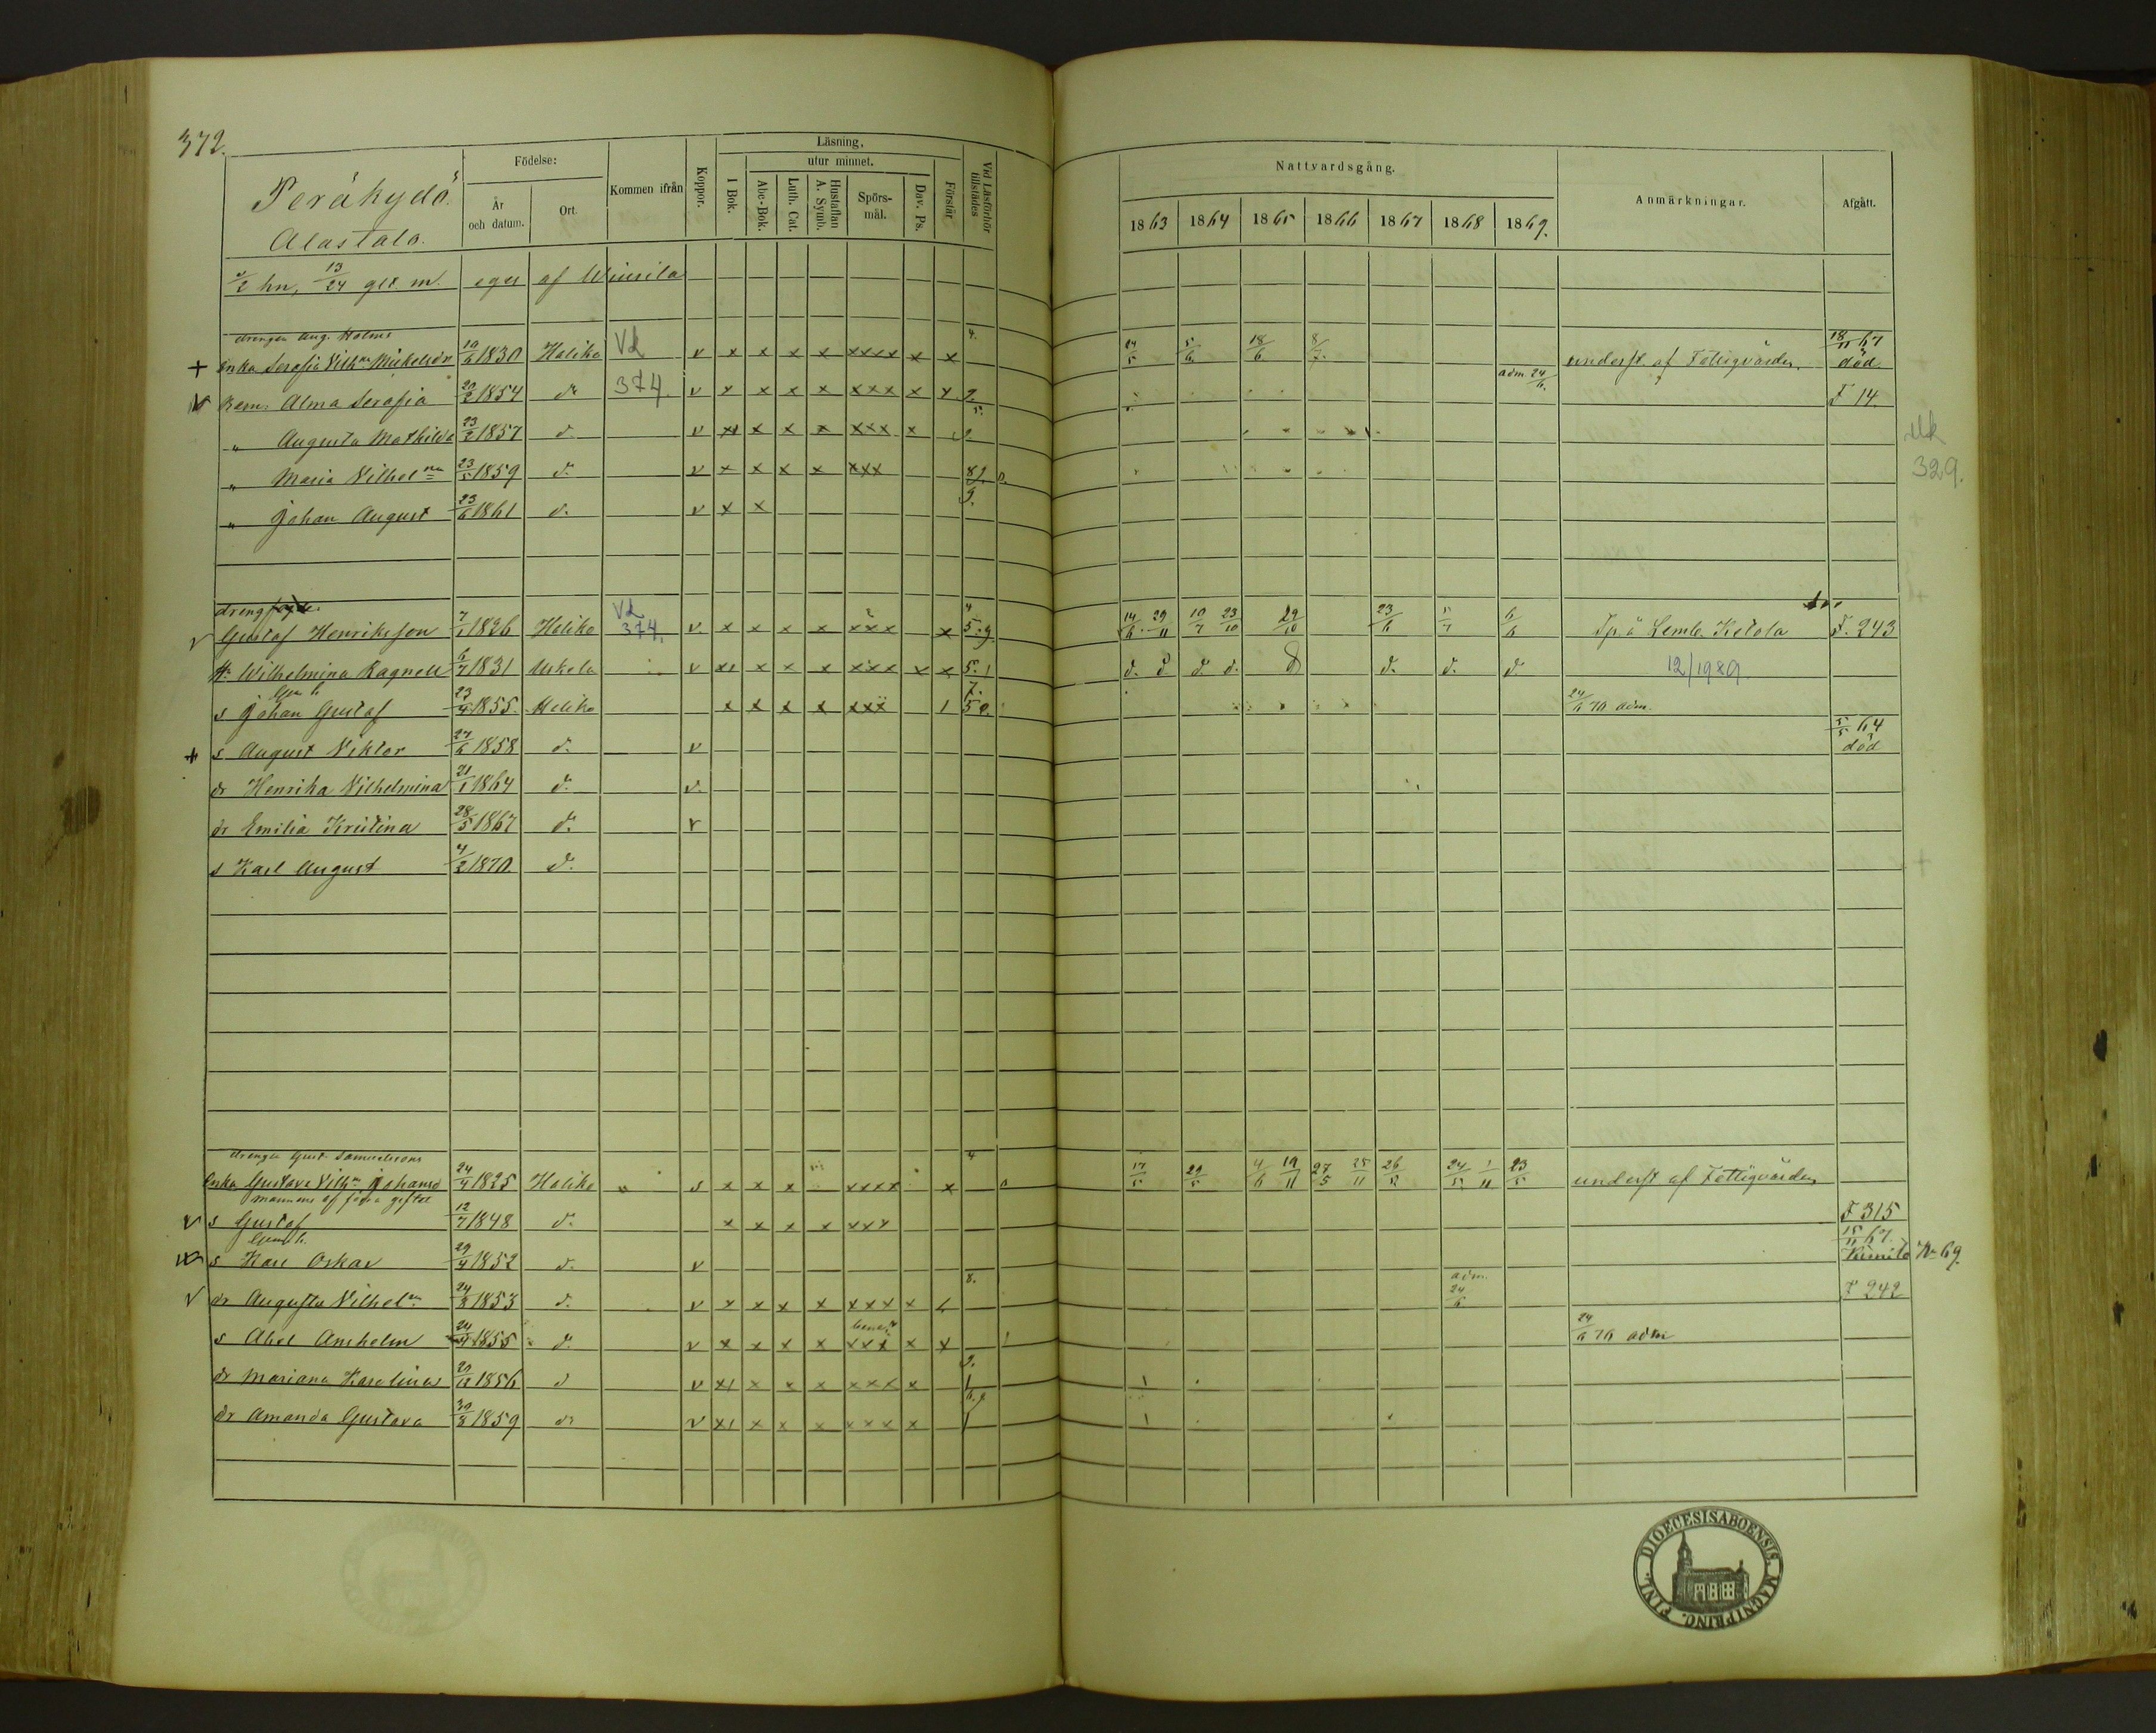 372.
Peräkydö.
Alastalo.
Födelse:
År och datum.
Ort.
Kommen ifrån
Koppor.
Läsning,
utur minnet.
I Bok.
Abc-Bok.
Luth. Cat.
Hustaflan A. Symb.
Spörs-mål.
Dav. Ps.
Förstår
Vid Läsförhör tillstädes
Nattvardsgång.
1863 1864 1865 1866 1867 1868 1869.
Anmärkningar.
Afgått.
1/2 hn, 13/24 glt. m. eges af Wiurila
drengen Aug. Holms 4.
+ Enka Serafia Vilhna Mickelsdr 10/6 1830 Haliko Vd v x x x x xxxx x x 24/5 5/6 18/6 8/7. underst. af Fattigvården. 18/11 67 död
v Barn: Alma Serafia 20/2 1854 do 374. v x x x x xxx x x adm. 24/6. F 14.
" Augusta Mathilda 23/2 1857 d. v x x x x xxx x
" Maria Vilhelma 23/5 1859 d. v x x x x xxx
329.
" Johan August 23/6 1861 d. v x x
drengfogde
v Gustaf Henriksson 7/1 1826 Haliko Vd 374. v. x x x x xxx x 5.9. 14/6 29/11 10/7 23/10 29/10 23/6 5/7 6/6 Sp. å Lemb. Ketola F. 243
H. Wilhelmina Ragnell 6/7 1831 Uskela v x x x x xxx x x 5.1 d. d. d. d. d d. d. d. 12/1989.
s Johan Gustaf 23/4 1855. Haliko x x x x xxx 1 24/6 70 adm.
+ s August Viktor 27/6 1858 d. v 5/5 64 död
dr Henrika Vilhelmina 21/1 1864 d. v.
dr Emilia Kristina 28/5 1867 d. v
s Karl August 4/2 1870. d.
drengen Gust. Samuelssons 4
Enka Gustava Vilhna Johansd 24/4 1825 Haliko " s x x x xxxx x 17/5 29/5 4/6 19/11 27/5 25/11 26/5 24/5 1/11 23/5 underst af Fattigvården
mannens af förra giftet
v s Gustaf 12/7 1848 d. x x x x xxx F 315
s Karl Oskar 29/4 1852 d. v 15/11 67. Kimito No 69.
v dr Augusta Vilhelma 24/8 1853 d. v x x x x xxxx x 8. adm. 24/6 F 242
s Abel Anshelm 24/4 1855 d. v x x x x xxxx x x 24/6 70 adm
dr Mariana Karolina 1856 d v x x x x xxxx x
dr Amanda Gustava 30/8 1859 do v x x x x xxxx x
DIOECESIS ABOENSIS. MAGNI PRINC. FINL.